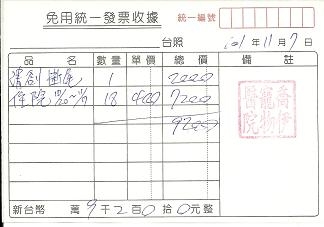 免用統一發票收據 統一編號
台照 101年11月7日
品名 數量 單價 總價 備註
清創 1 2000
住院 18 400 7200
9200
喬伊寵物醫院
新台幣 萬9千2百0拾0元整